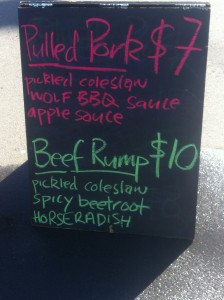 Pulled Pork $7
pickled coleslaw
WOLF BBQ sauce
apple sauce
Beef Rump $10
pickled coleslaw
spicy beetroot
HORSERADISH